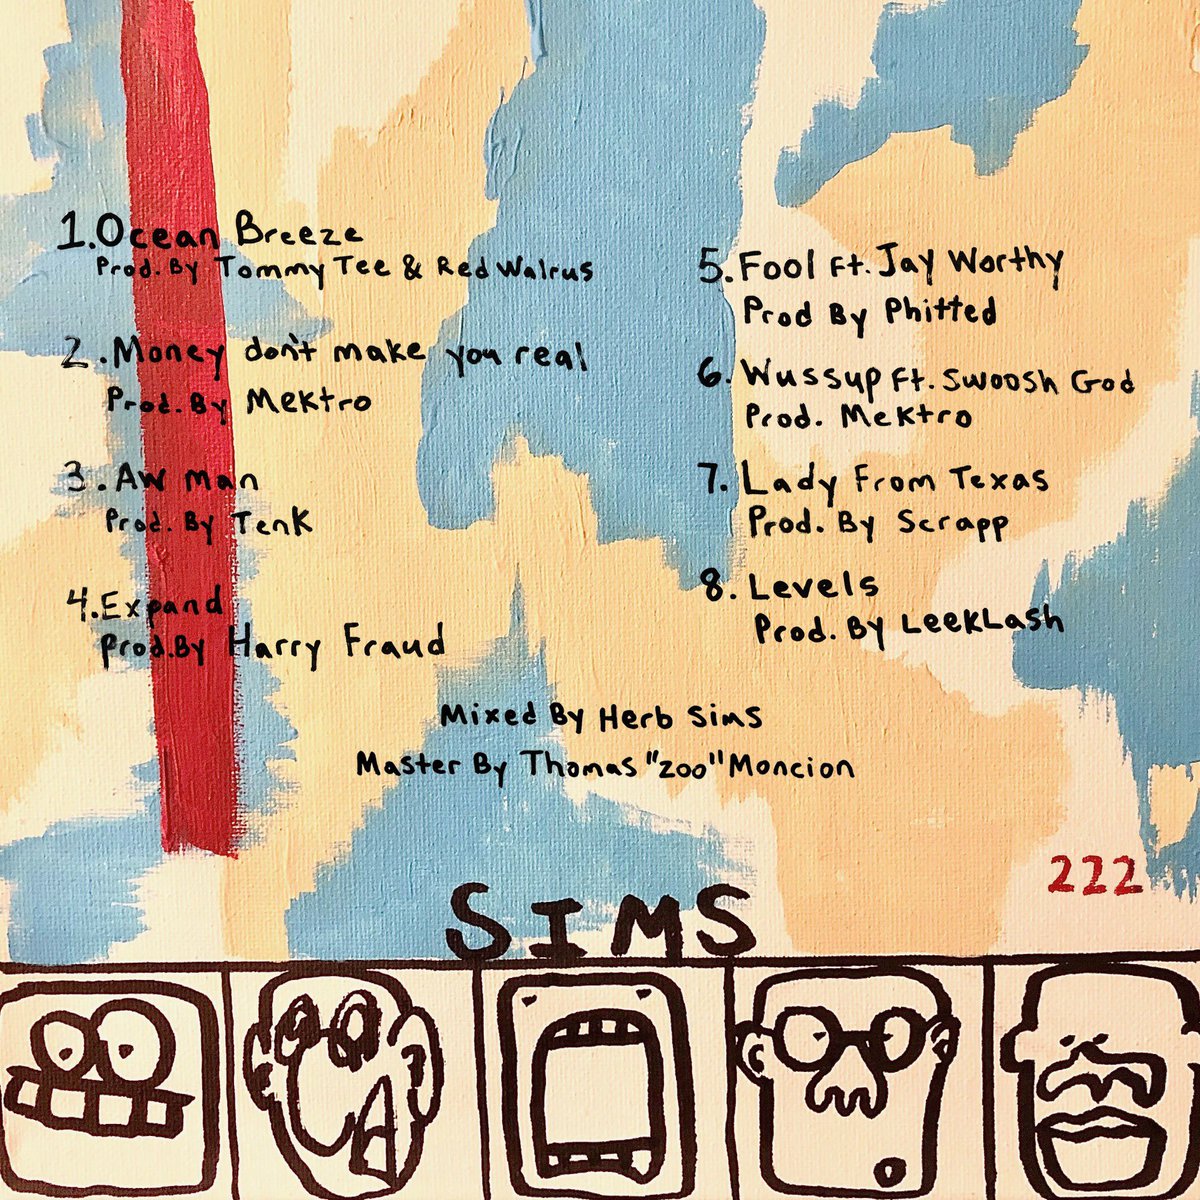 1. Ocean Breeze
Prod. By Tommy Tee & Red Walrus
2. Money don't make you real
Prod. By Mektro
3. Aw man
Prod. By TenK
4. Expand
Prod. By Harry Fraud
5. Fool Ft. Jay Worthy
Prod By Phitted
6. Wussup Ft. Swoosh God
Prod. Mektro
7. Lady From Texas
Prod. By Scrapp
8. Levels
Prod. By LeekLash
Mixed By Herb Sims
Master By Thomas "Zoo" Moncion
222
SIMS